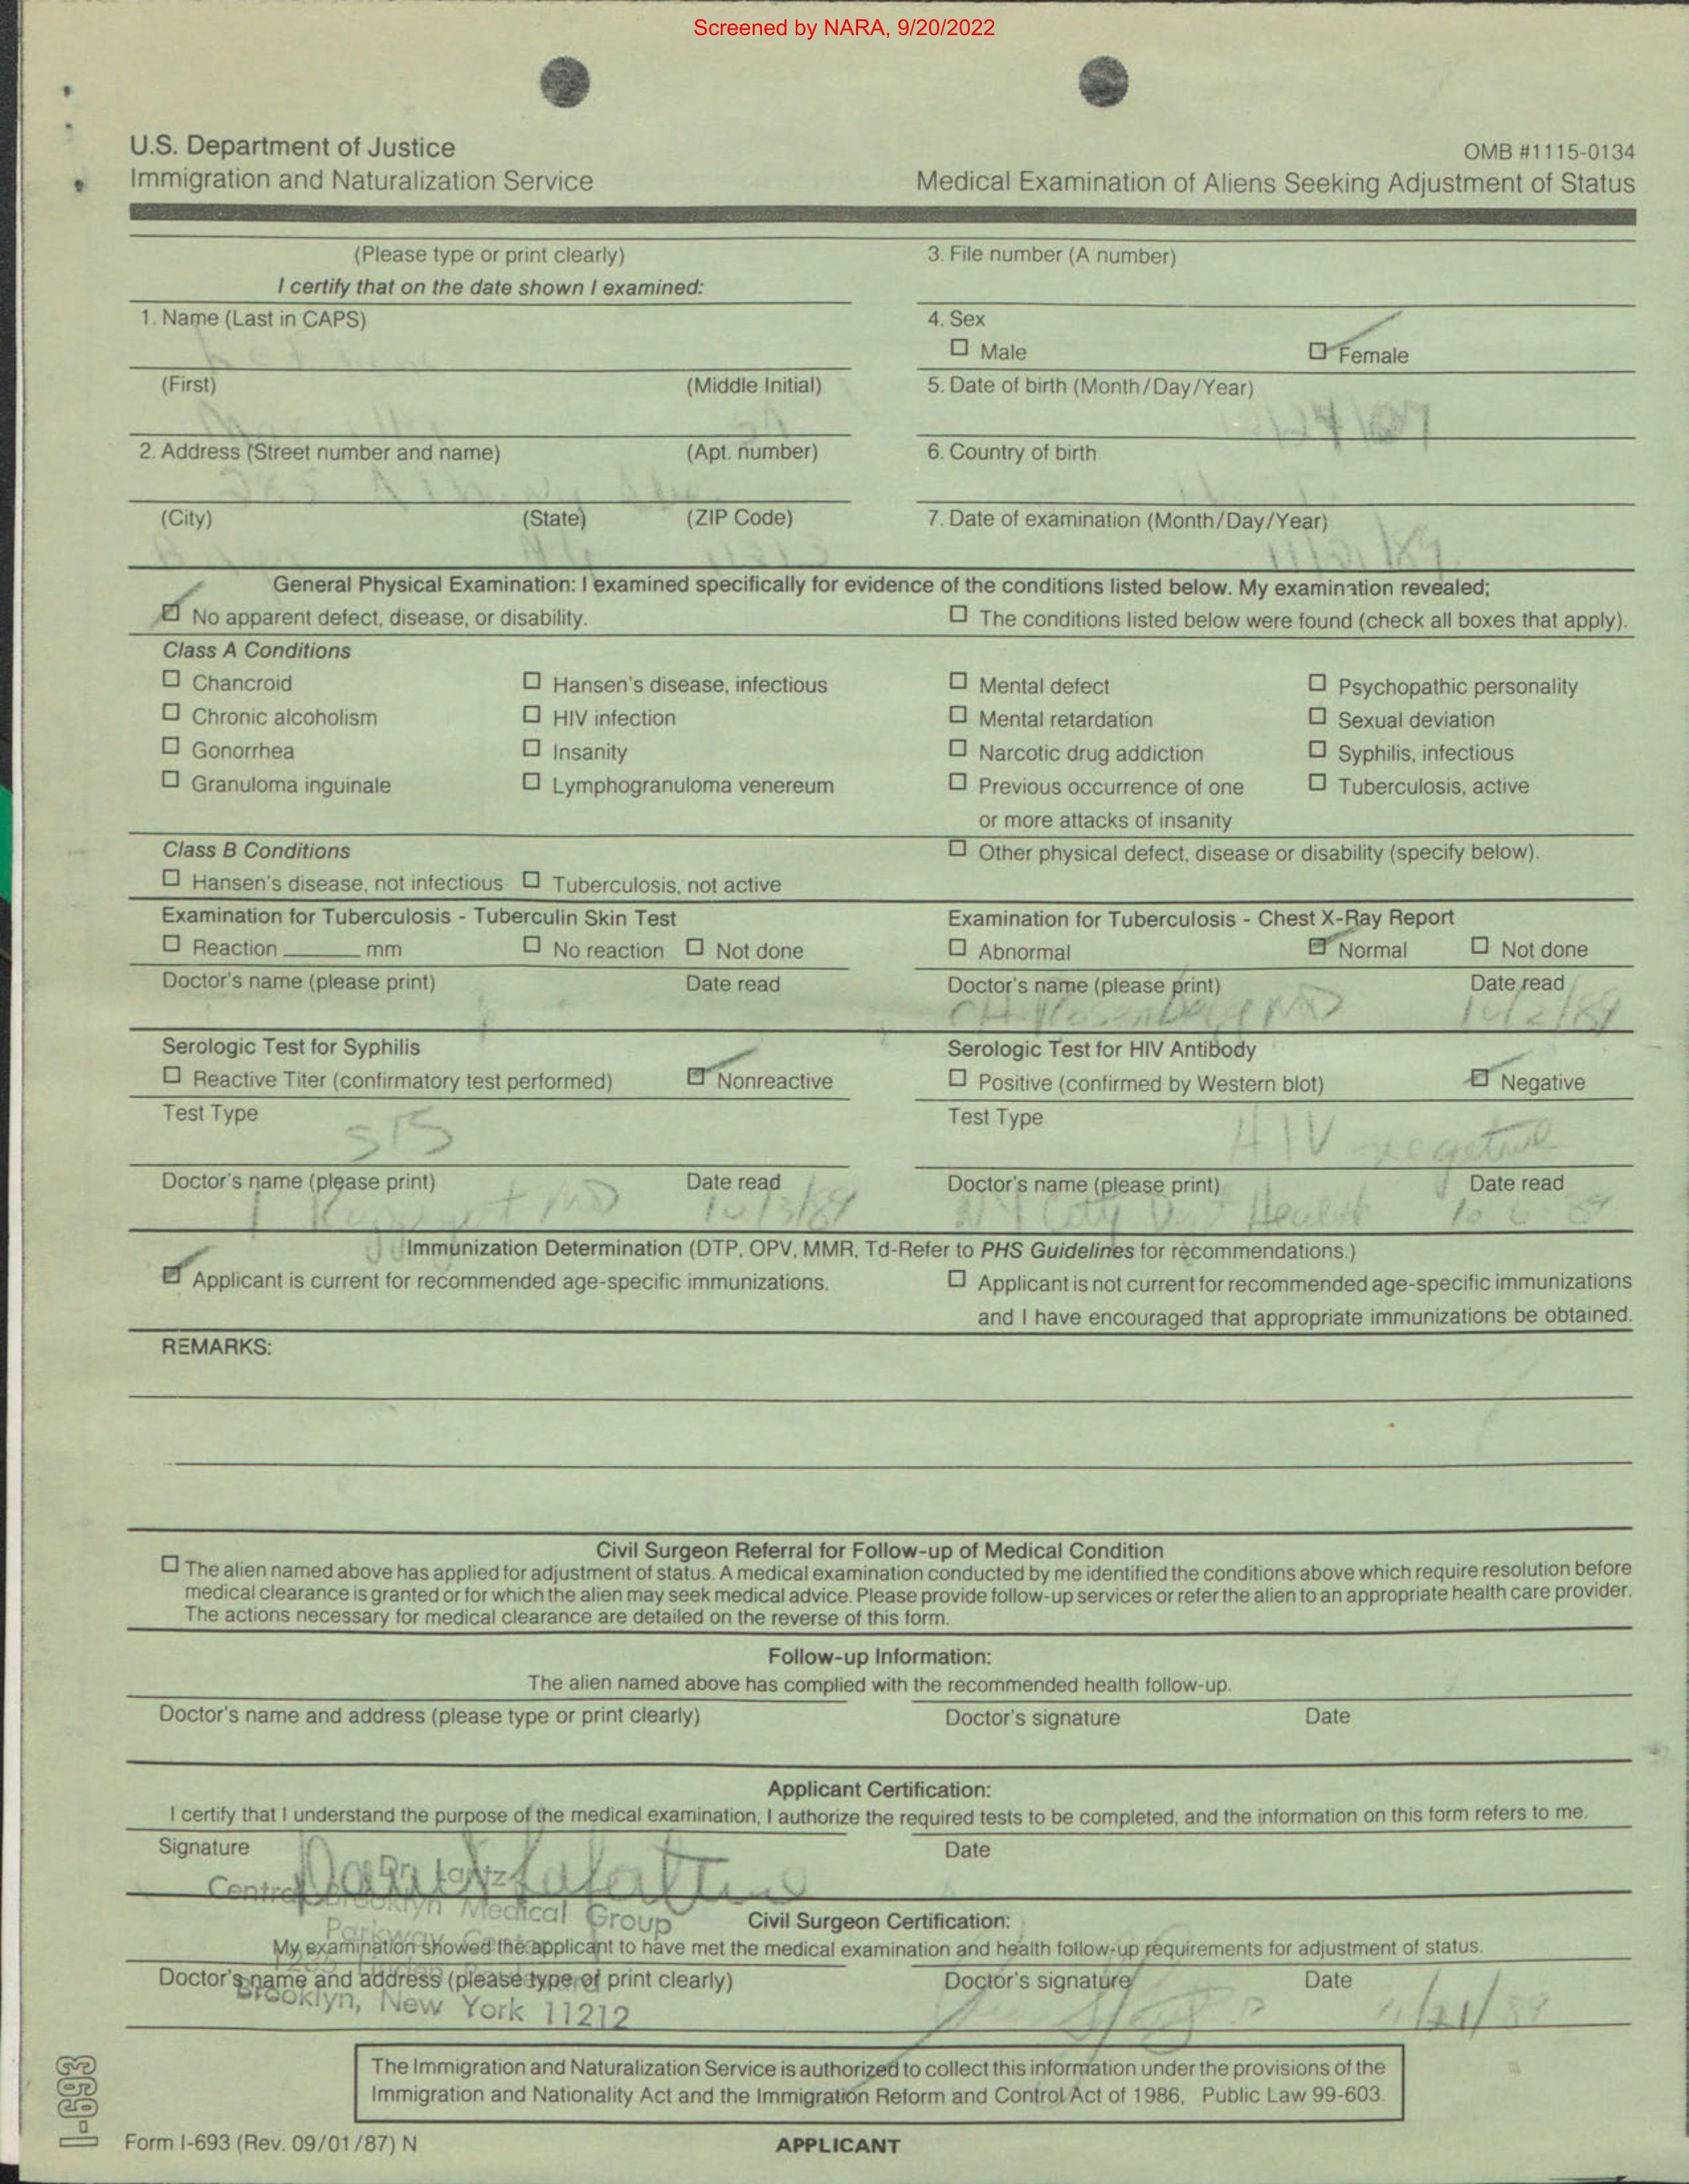 Screened by NARA, 9/20/2022
U.S. Department of Justice
Immigration and Naturalization Service
OMB #1115-0134
Medical Examination of Aliens Seeking Adjustment of Status
(Please type or print clearly)
I certify that on the date shown I examined:
3. File number (A number)
1. Name (Last in CAPS)
4. Sex
☐ Male ☑ Female
(First) (Middle Initial)
5. Date of birth (Month/Day/Year)
2. Address (Street number and name) (Apt. number)
6. Country of birth
(City) (State) (ZIP Code)
7. Date of examination (Month/Day/Year)
11/21/89
General Physical Examination: I examined specifically for evidence of the conditions listed below. My examination revealed;
☑ No apparent defect, disease, or disability. ☐ The conditions listed below were found (check all boxes that apply).
Class A Conditions
☐ Chancroid ☐ Hansen's disease, infectious ☐ Mental defect ☐ Psychopathic personality
☐ Chronic alcoholism ☐ HIV infection ☐ Mental retardation ☐ Sexual deviation
☐ Gonorrhea ☐ Insanity ☐ Narcotic drug addiction ☐ Syphilis, infectious
☐ Granuloma inguinale ☐ Lymphogranuloma venereum ☐ Previous occurrence of one ☐ Tuberculosis, active
or more attacks of insanity
Class B Conditions ☐ Other physical defect, disease or disability (specify below).
☐ Hansen's disease, not infectious ☐ Tuberculosis, not active
Examination for Tuberculosis - Tuberculin Skin Test
☐ Reaction ____ mm ☐ No reaction ☐ Not done
Doctor's name (please print) Date read
Examination for Tuberculosis - Chest X-Ray Report
☐ Abnormal ☑ Normal ☐ Not done
Doctor's name (please print) Date read
MD 10/2/89
Serologic Test for Syphilis
☐ Reactive Titer (confirmatory test performed) ☑ Nonreactive
Test Type
STS
Doctor's name (please print) Date read
MD 10/3/89
Serologic Test for HIV Antibody
☐ Positive (confirmed by Western blot) ☑ Negative
Test Type
HIV negative
Doctor's name (please print) Date read
NY City Dept Health 10 6 89
Immunization Determination (DTP, OPV, MMR, Td-Refer to PHS Guidelines for recommendations.)
☑ Applicant is current for recommended age-specific immunizations. ☐ Applicant is not current for recommended age-specific immunizations
and I have encouraged that appropriate immunizations be obtained.
REMARKS:
Civil Surgeon Referral for Follow-up of Medical Condition
☐ The alien named above has applied for adjustment of status. A medical examination conducted by me identified the conditions above which require resolution before
medical clearance is granted or for which the alien may seek medical advice. Please provide follow-up services or refer the alien to an appropriate health care provider.
The actions necessary for medical clearance are detailed on the reverse of this form.
Follow-up Information:
The alien named above has complied with the recommended health follow-up.
Doctor's name and address (please type or print clearly) Doctor's signature Date
Applicant Certification:
I certify that I understand the purpose of the medical examination, I authorize the required tests to be completed, and the information on this form refers to me.
Signature Date
Dr. Lantz
Central Brooklyn Medical Group
Civil Surgeon Certification:
Parkway
My examination showed the applicant to have met the medical examination and health follow-up requirements for adjustment of status.
Doctor's name and address (please type or print clearly) Doctor's signature Date
Brooklyn, New York 11212
11/21/89
The Immigration and Naturalization Service is authorized to collect this information under the provisions of the
Immigration and Nationality Act and the Immigration Reform and Control Act of 1986, Public Law 99-603.
I-693
Form I-693 (Rev. 09/01/87) N
APPLICANT